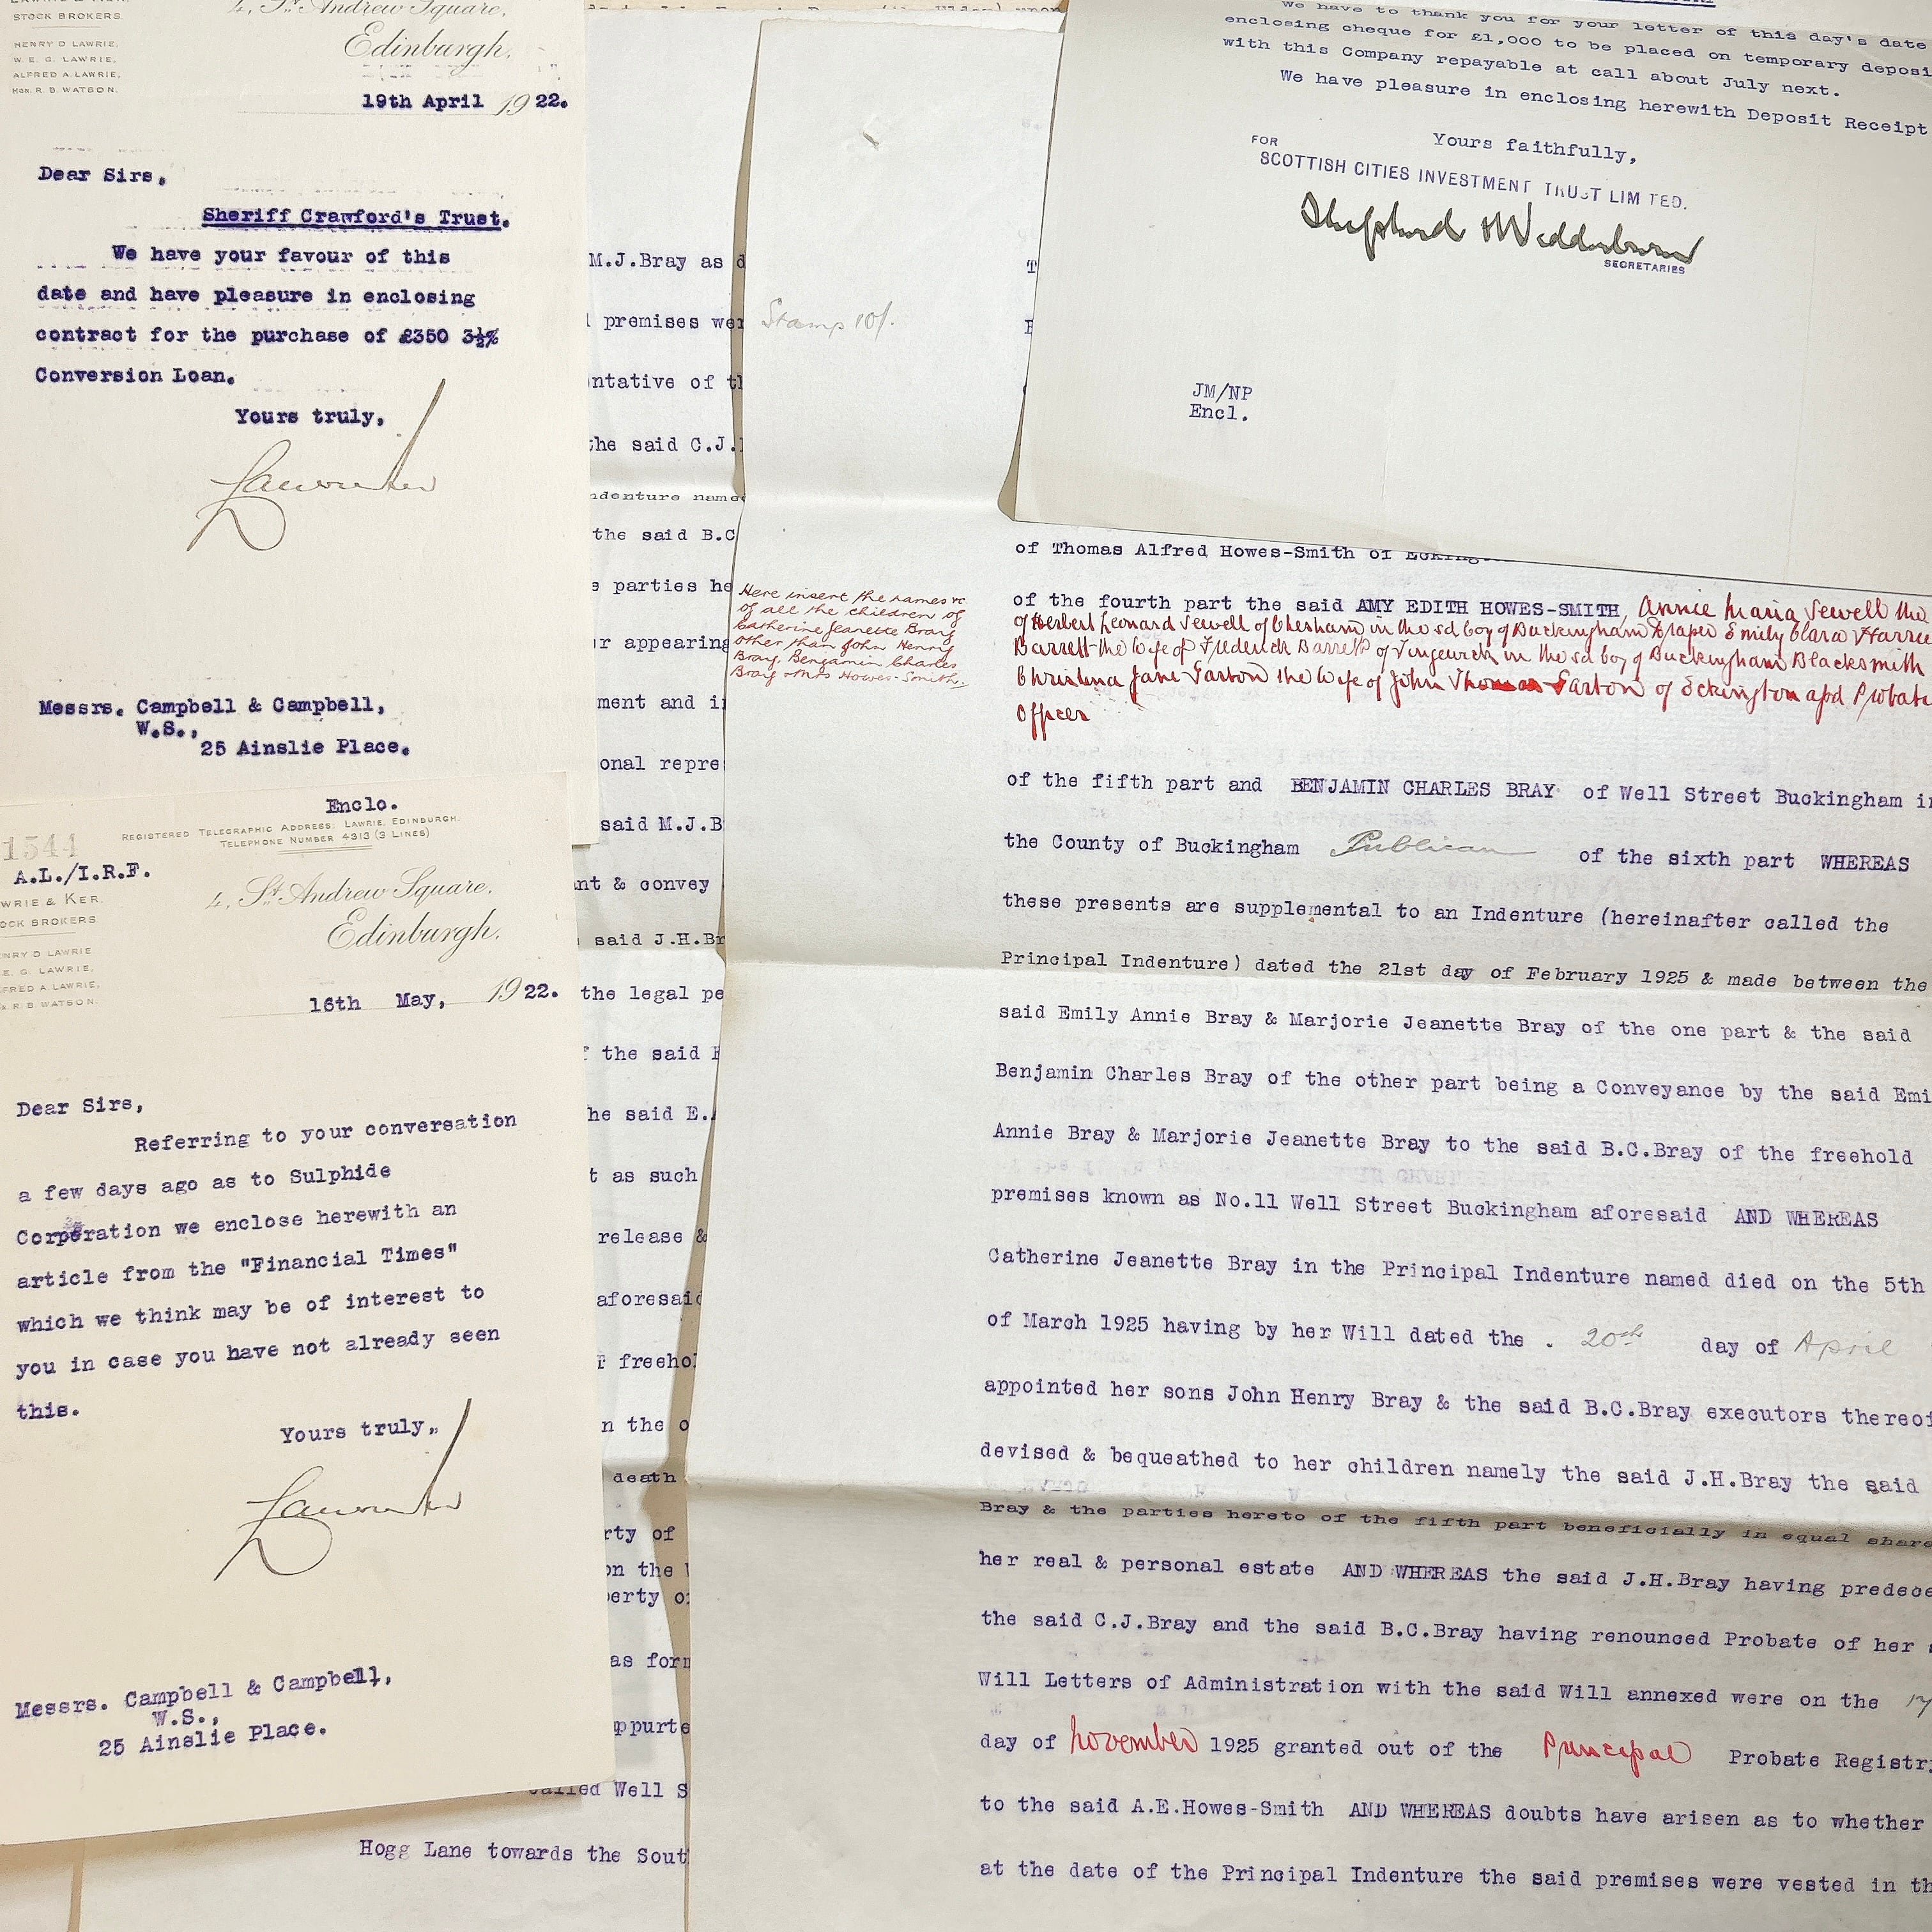 STOCK BROKERS.
HENRY D LAWRIE,
W. E. G. LAWRIE,
ALFRED A. LAWRIE,
HON. R. B. WATSON.
4, St. Andrew Square,
Edinburgh,
19th April 1922.
Dear Sirs,
Sheriff Crawford's Trust.
We have your favour of this
date and have pleasure in enclosing
contract for the purchase of £350 3½%
Conversion Loan.
Yours truly,
Messrs. Campbell & Campbell,
W.S.,
25 Ainslie Place.
Enclo.
1544
REGISTERED TELEGRAPHIC ADDRESS: LAWRIE, EDINBURGH.
TELEPHONE NUMBER 4313 (3 LINES)
A.L./I.R.F.
WRIE & KER.
OCK BROKERS.
NRY D LAWRIE
E. G. LAWRIE,
FRED A. LAWRIE,
N. R. B. WATSON.
4, St. Andrew Square,
Edinburgh,
16th May, 1922.
Dear Sirs,
Referring to your conversation
a few days ago as to Sulphide
Corporation we enclose herewith an
article from the "Financial Times"
which we think may be of interest to
you in case you have not already seen
this.
Yours truly,
Messrs. Campbell & Campbell,
W.S.,
25 Ainslie Place.
M.J.Bray as d
premises wer
ntative of th
the said C.J.
ndenture name
the said B.C
s parties he
r appearing
ment and i
onal repre
said M.J.B
nt & convey
said J.H.Br
the legal pe
f the said
he said E.
t as such
release &
aforesaid
freehol
n the o
death
rty of
on the
perty o
as form
ppurte
called Well S
Hogg Lane towards the Sout
Stamp 10/.
Here insert the names &c.
of all the children of
Catherine Jeanette Bray
other than John Henry
Bray, Benjamin Charles
Bray & Mrs Howes-Smith.
We have to thank you for your letter of this day's date
enclosing cheque for £1,000 to be placed on temporary deposi
with this Company repayable at call about July next.
We have pleasure in enclosing herewith Deposit Receipt
Yours faithfully,
FOR
SCOTTISH CITIES INVESTMENT TRUST LIM TED.
Shepherd & Wedderburn
SECRETARIES
JM/NP
Encl.
of Thomas Alfred Howes-Smith of Ecking
of the fourth part the said AMY EDITH HOWES-SMITH, Annie Maria Sewell the
of Herbert Leonard Sewell of Chesham in the sd Coy of Buckingham Draper Emily Clara Harrie
Barrett the wife of Frederick Barrett of Tingewick in the sd Coy of Buckingham Blacksmith
Christina Jane Garton the wife of John Thomas Garton of Eckington afsd Probate
Officer
of the fifth part and BENJAMIN CHARLES BRAY of Well Street Buckingham in
the County of Buckingham Publican of the sixth part WHEREAS
these presents are supplemental to an Indenture (hereinafter called the
Principal Indenture) dated the 21st day of February 1925 & made between the
said Emily Annie Bray & Marjorie Jeanette Bray of the one part & the said
Benjamin Charles Bray of the other part being a Conveyance by the said Emi
Annie Bray & Marjorie Jeanette Bray to the said B.C.Bray of the freehold
premises known as No.11 Well Street Buckingham aforesaid AND WHEREAS
Catherine Jeanette Bray in the Principal Indenture named died on the 5th
of March 1925 having by her Will dated the . 20th day of April
appointed her sons John Henry Bray & the said B.C.Bray executors thereof
devised & bequeathed to her children namely the said J.H.Bray the said
Bray & the parties hereto of the fifth part beneficially in equal share
her real & personal estate AND WHEREAS the said J.H.Bray having predece
the said C.J.Bray and the said B.C.Bray having renounced Probate of her
Will Letters of Administration with the said Will annexed were on the 17
day of November 1925 granted out of the Principal Probate Registry
to the said A.E.Howes-Smith AND WHEREAS doubts have arisen as to whether
at the date of the Principal Indenture the said premises were vested in th